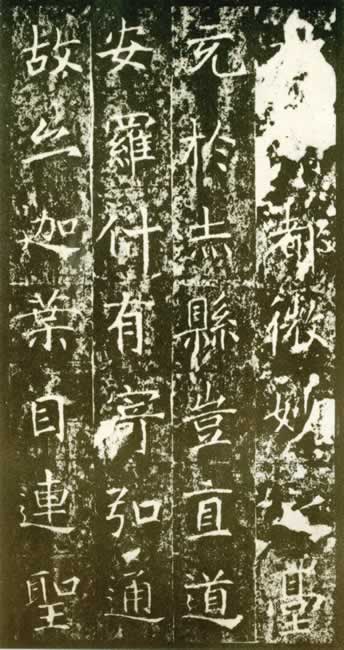 都微妙臺
於赤縣豈直道
安羅什有寄弘通
故亦迦葉目連聖